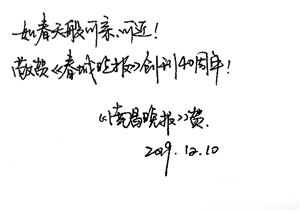 如春天般可亲、可近！
敬贺《春城晚报》创刊40周年！
《南昌晚报》贺.
2019.12.10